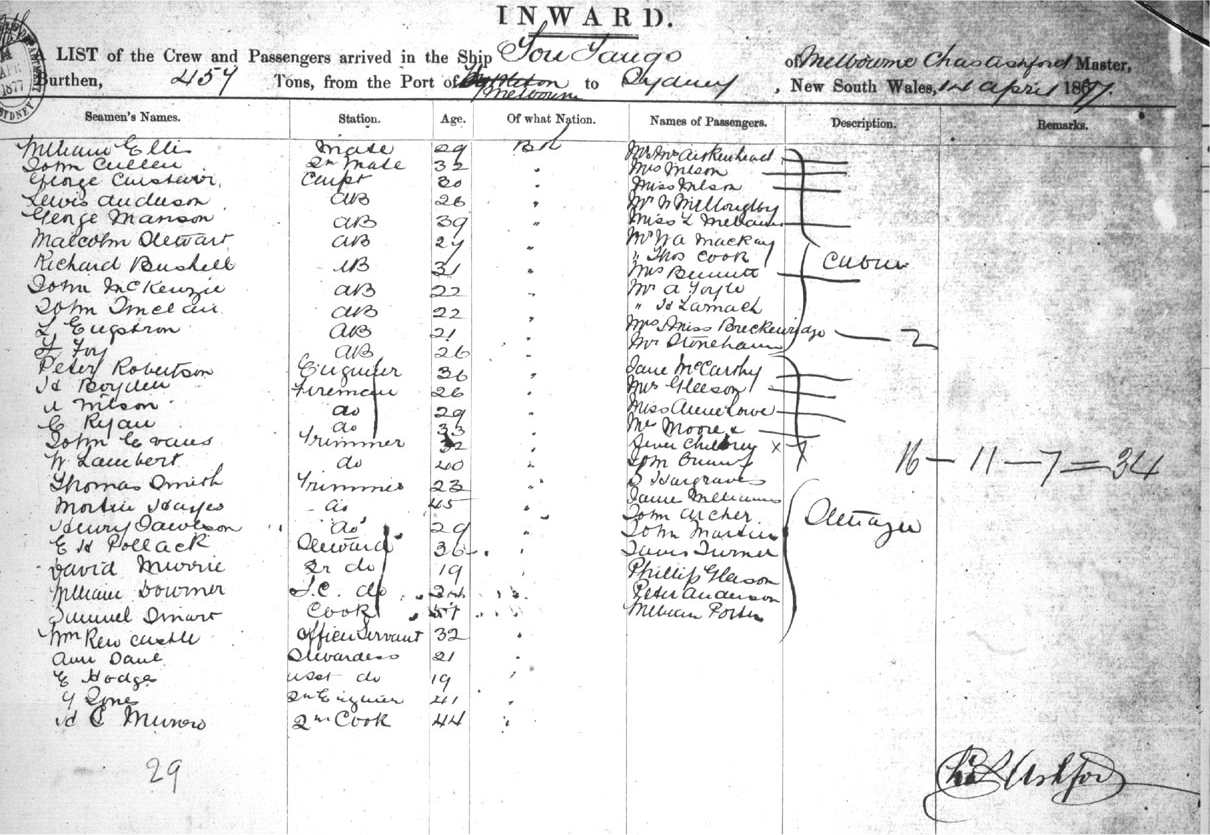 INWARD.
LIST of the Crew and Passengers arrived in the Ship You Yangs of Melbourne Chas Ashford Master,
Burthen, 457 Tons, from the Port of Melbourne to Sydney, New South Wales, 14 April 1877.
Seamen's Names. Station. Age. Of what Nation. Names of Passengers. Description. Remarks.
William Ellis Mate 29 Brit Mr & Mrs Aikenhead
John Cullen 2n Mate 32 " Mrs Wilson
George Carpt 30 " Miss Wilson
Lewis Anderson AB 26 " Mr W Willoughby
George Manson AB 39 " Miss L
Malcolm Stewart AB 27 " Mr W A Mackay
Richard Bushell AB 31 " " Thos Cook Cabin
John McKenzie AB 22 " Mrs Bennett
John Sinclair AB 22 " Mr A
L Engstrom AB 21 " " Hd Larnach
F Foy AB 26 " Mrs & Miss Breckenridge 2
Peter Robertson Engineer 36 " Mr Stoneham
Hd Boyden Fireman 26 " Jane McCarthy
A Wilson do 29 " Mrs Gleeson
E Ryan do 33 " Miss Annie Lowe
John Evans Trimmer 32 " Mrs Moore &
W Lambert do 40 " Children x 7
Thomas Smith Trimmer 23 " Tom
Martin Hayes do 45 " S Hargraves
Henry Dawson do 29 " Jane Williams
E H Pollack Steward 36 " John Archer Steerage
David Murrie 2r do 19 " John Martin
William Downer S.C. do 24 " Turner
Samuel Smart Cook 57 " Phillip Gleason
Wm Rew Castle Officer Servant 32 " Peter Anderson
Ann Stewardess 21 " William Porter
E Hodge asst do 19 "
Y Jones 2n Engineer 41 "
Hd C Munro 2nd Cook 44 "
16 — 11 — 7 = 34
29
Chas Ashford